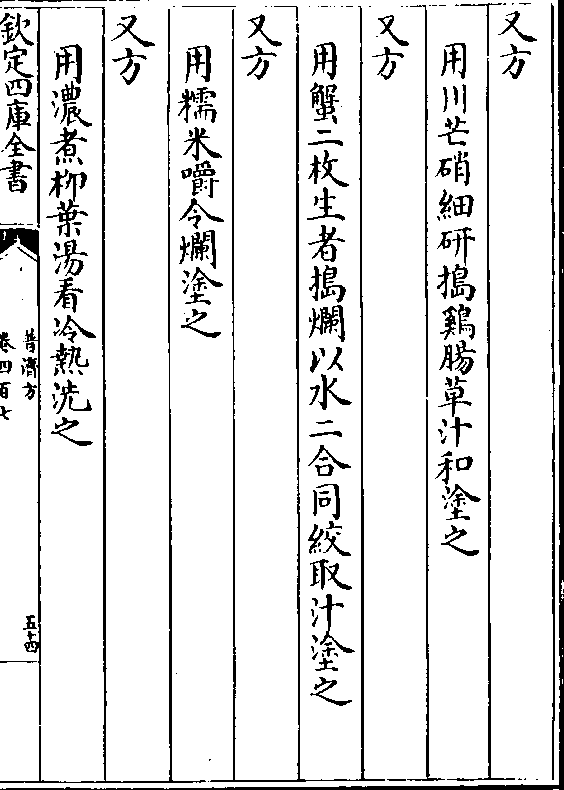 又方
用川芒硝細研搗鷄腸草汁和塗之
又方
用蟹二枚生者搗爛以水二合同絞取汁塗之
又方
用糯米嚼令爛塗之
又方
用濃煮柳葉湯看冷熱洗之
欽定四庫全書
普濟方
卷四百七
五十四